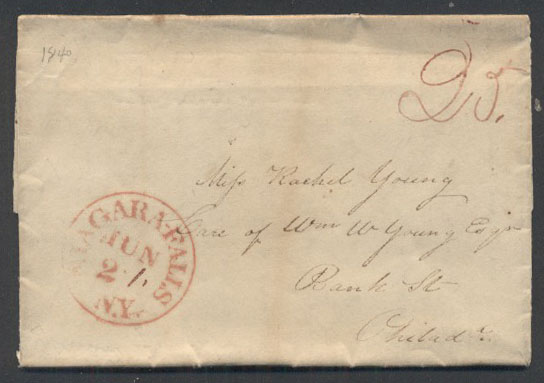 1840
25.
Miss Rachel Young
Care of Wm W Young Esqr
Bank St
Philada
NIAGARA-FALLS
JUN
21.
N.Y.